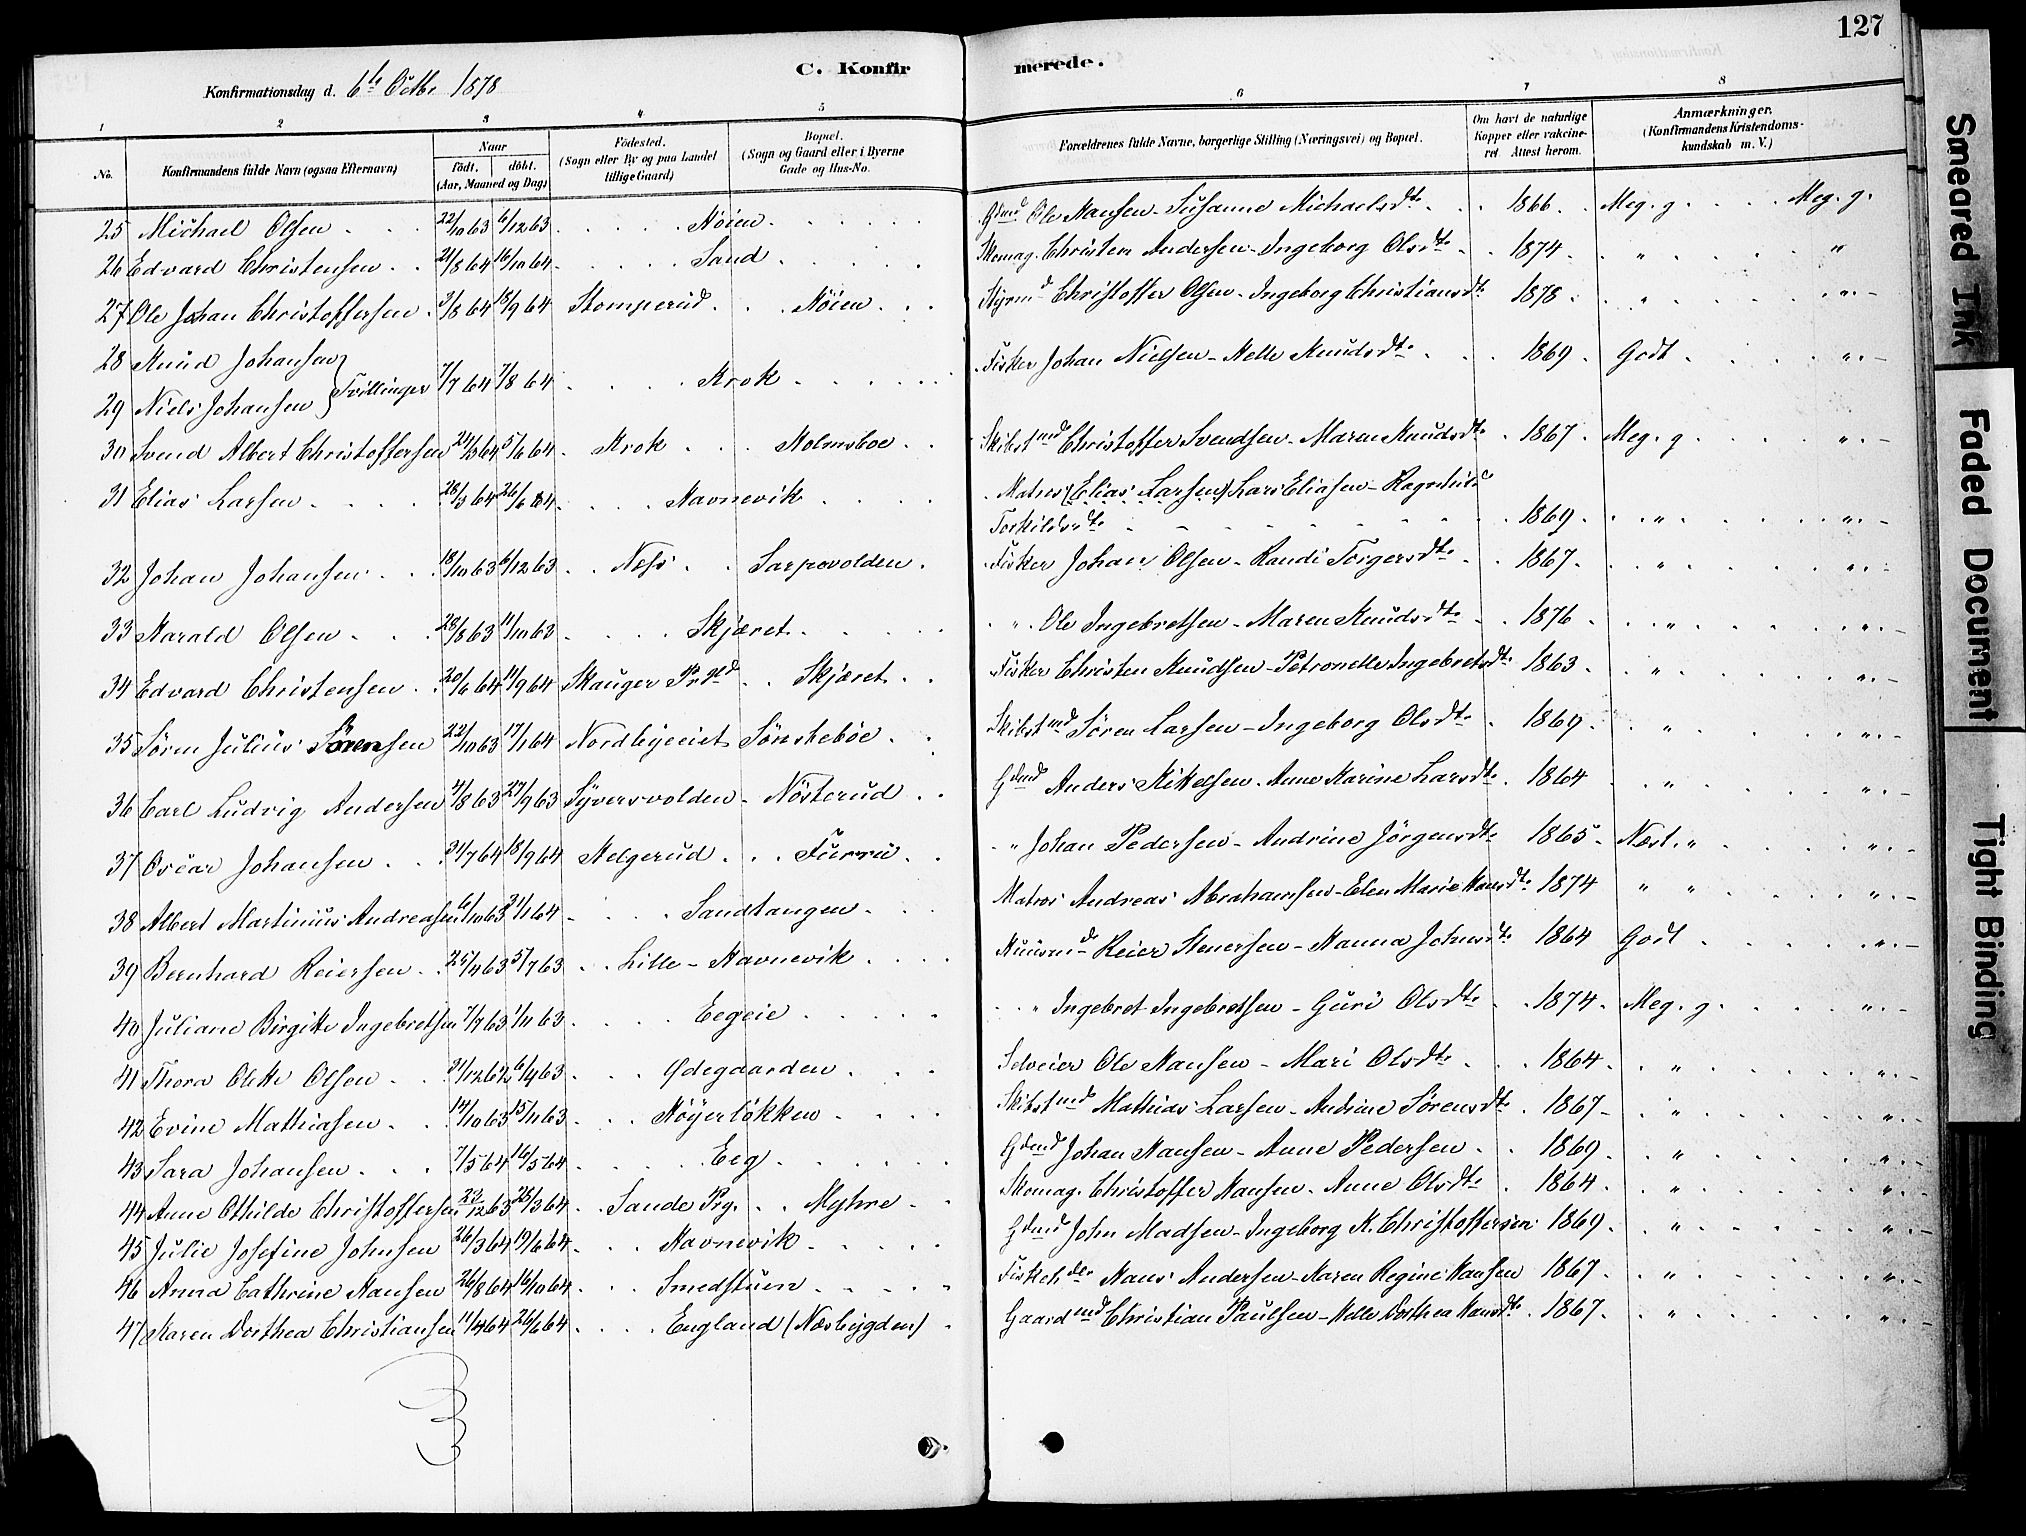 127
C. Konfirmerede.
Konfirmationsdag d. 6te Octbr 1878
1 2 3 4 5 6 7 8
No. Konfirmandens fulde Navn (ogsaa Efternavn) Naar Födt. döbt. (Aar, Maaned og Dag) Födested. (Sogn eller By og paa Landet tillige Gaard) Bopæl. (Sogn og Gaard eller i Byerne Gade og Hus-No. Forældrenes fulde Navne, borgerlige Stilling (Næringsvei) og Bopæl. Om havt de naturlige Kopper eller vakcineret. Attest herom. Anmærkninger. (Konfirmandens Kristendomskundskab m. V.)
25 Michael Olsen 22/10 63 6/12 63 Nøien Gdmd Ole Hansen - Susanne Michaelsdtr 1866 Meg. g. Meg. g.
26 Edvard Christensen 21/8 64 16/10 64 Sand Skomag. Christen Andersen - Ingeborg Olsdtr 1874 " "
27 Ole Johan Christoffersen 3/8 64 18/9 64 Stomperud Nøien Styrmd Christoffer Olsen - Ingeborg Christiansdtr 1878 " "
28 Knud Johansen
29 Niels Johansen } Tvillinger 7/7 64 7/8 64 Krok Fisker Johan Nielsen - Helle Knudsdtr 1869 Godt "
30 Svend Albert Christoffersen 21/3 64 5/6 64 Krok Holmsboe Skibstmd Christoffer Svendsen - Maren Knudsdtr 1867 Meg. g "
31 Elias Larsen 28/3 64 26/6 64 Havnevik Matros (Elias Larsen) Lars Eliasen - Ragnhild
Torkildsdtr 1869 " "
32 Johan Johansen 18/10 63 6/12 63 Næss Sarpevolden Fisker Johan Olsen - Randi Torgersdtr 1867 " "
33 Harald Olsen 28/8 63 11/10 63 Skjæret " Ole Ingebretsen - Maren Knudsdtr 1876 " "
34 Edvard Christensen 20/6 64 11/9 64 Skauger Pr.gld Skjæret Fisker Christen Knudsen - Petronelle Ingebretsdtr 1863 " "
35 Søren Julius Sørensen 22/10 63 17/1 64 Nordbyeeiet Sønstebøe Skibstmd Søren Larsen - Ingeborg Olsdtr 1869 " "
36 Carl Ludvig Andersen 4/8 63 27/9 63 Syversvolden Nösterud Gdmd Anders Kittelsen - Anne Karine Larsdtr 1864 " "
37 Oscar Johansen 31/7 64 18/9 64 Helgerud Furru " Johan Pedersen - Andrine Jörgensdtr 1865 Næst. " "
38 Albert Martinius Andreasen 6/10 63 31/1 64 Sandtangen Matros Andreas Abrahamsen - Elen Marie Hansdtr 1874 " " "
39 Bernhard Reiersen 25/4 63 5/7 63 Lille-Havnevik Reier Stenersen - Hanna Johnsdtr 1864 Godt "
40 Juliane Birgitte Ingebretsen 7/7 63 1/11 63 Eegeie " Ingebret Ingebretsen - Guri Olsdtr 1874 Meg. g "
41 Thora Olette Olsen 31/12 62 6/4 63 Ødegaarden Selveier Ole Hansen - Mari Olsdtr 1864 " "
42 Evine Mathiasen 14/10 63 15/11 63 Høyerløkken Skibstmd Mathias Larsen - Andrine Sörensdtr 1867 " "
43 Sara Johansen 7/5 64 16/5 64 Eeg Gdmd Johan Hansen - Anne Pedersen 1869 " "
44 Anne Othilde Christoffersen 23/12 63 28/3 64 Sande Prg. Myhre Skomag. Christoffer Hansen - Anne Olsdtr 1864 " "
45 Julie Josefine Johnsen 26/3 64 19/6 64 Havnevik Gdmd John Madsen - Ingeborg K. Christoffersen 1869 " "
46 Anna Cathrine Hansen 26/8 64 16/10 64 Smedstuen Fiskehdlr Hans Andersen - Karen Regine Hansen 1867 " "
47 Karen Dorthea Christiansen 11/4 64 26/6 64 England (Næsbygden) Gaardmd Christian Paulsen - Helle Dorthea Hansdtr 1867 " "
Smeared Ink
Faded Document
Tight Binding